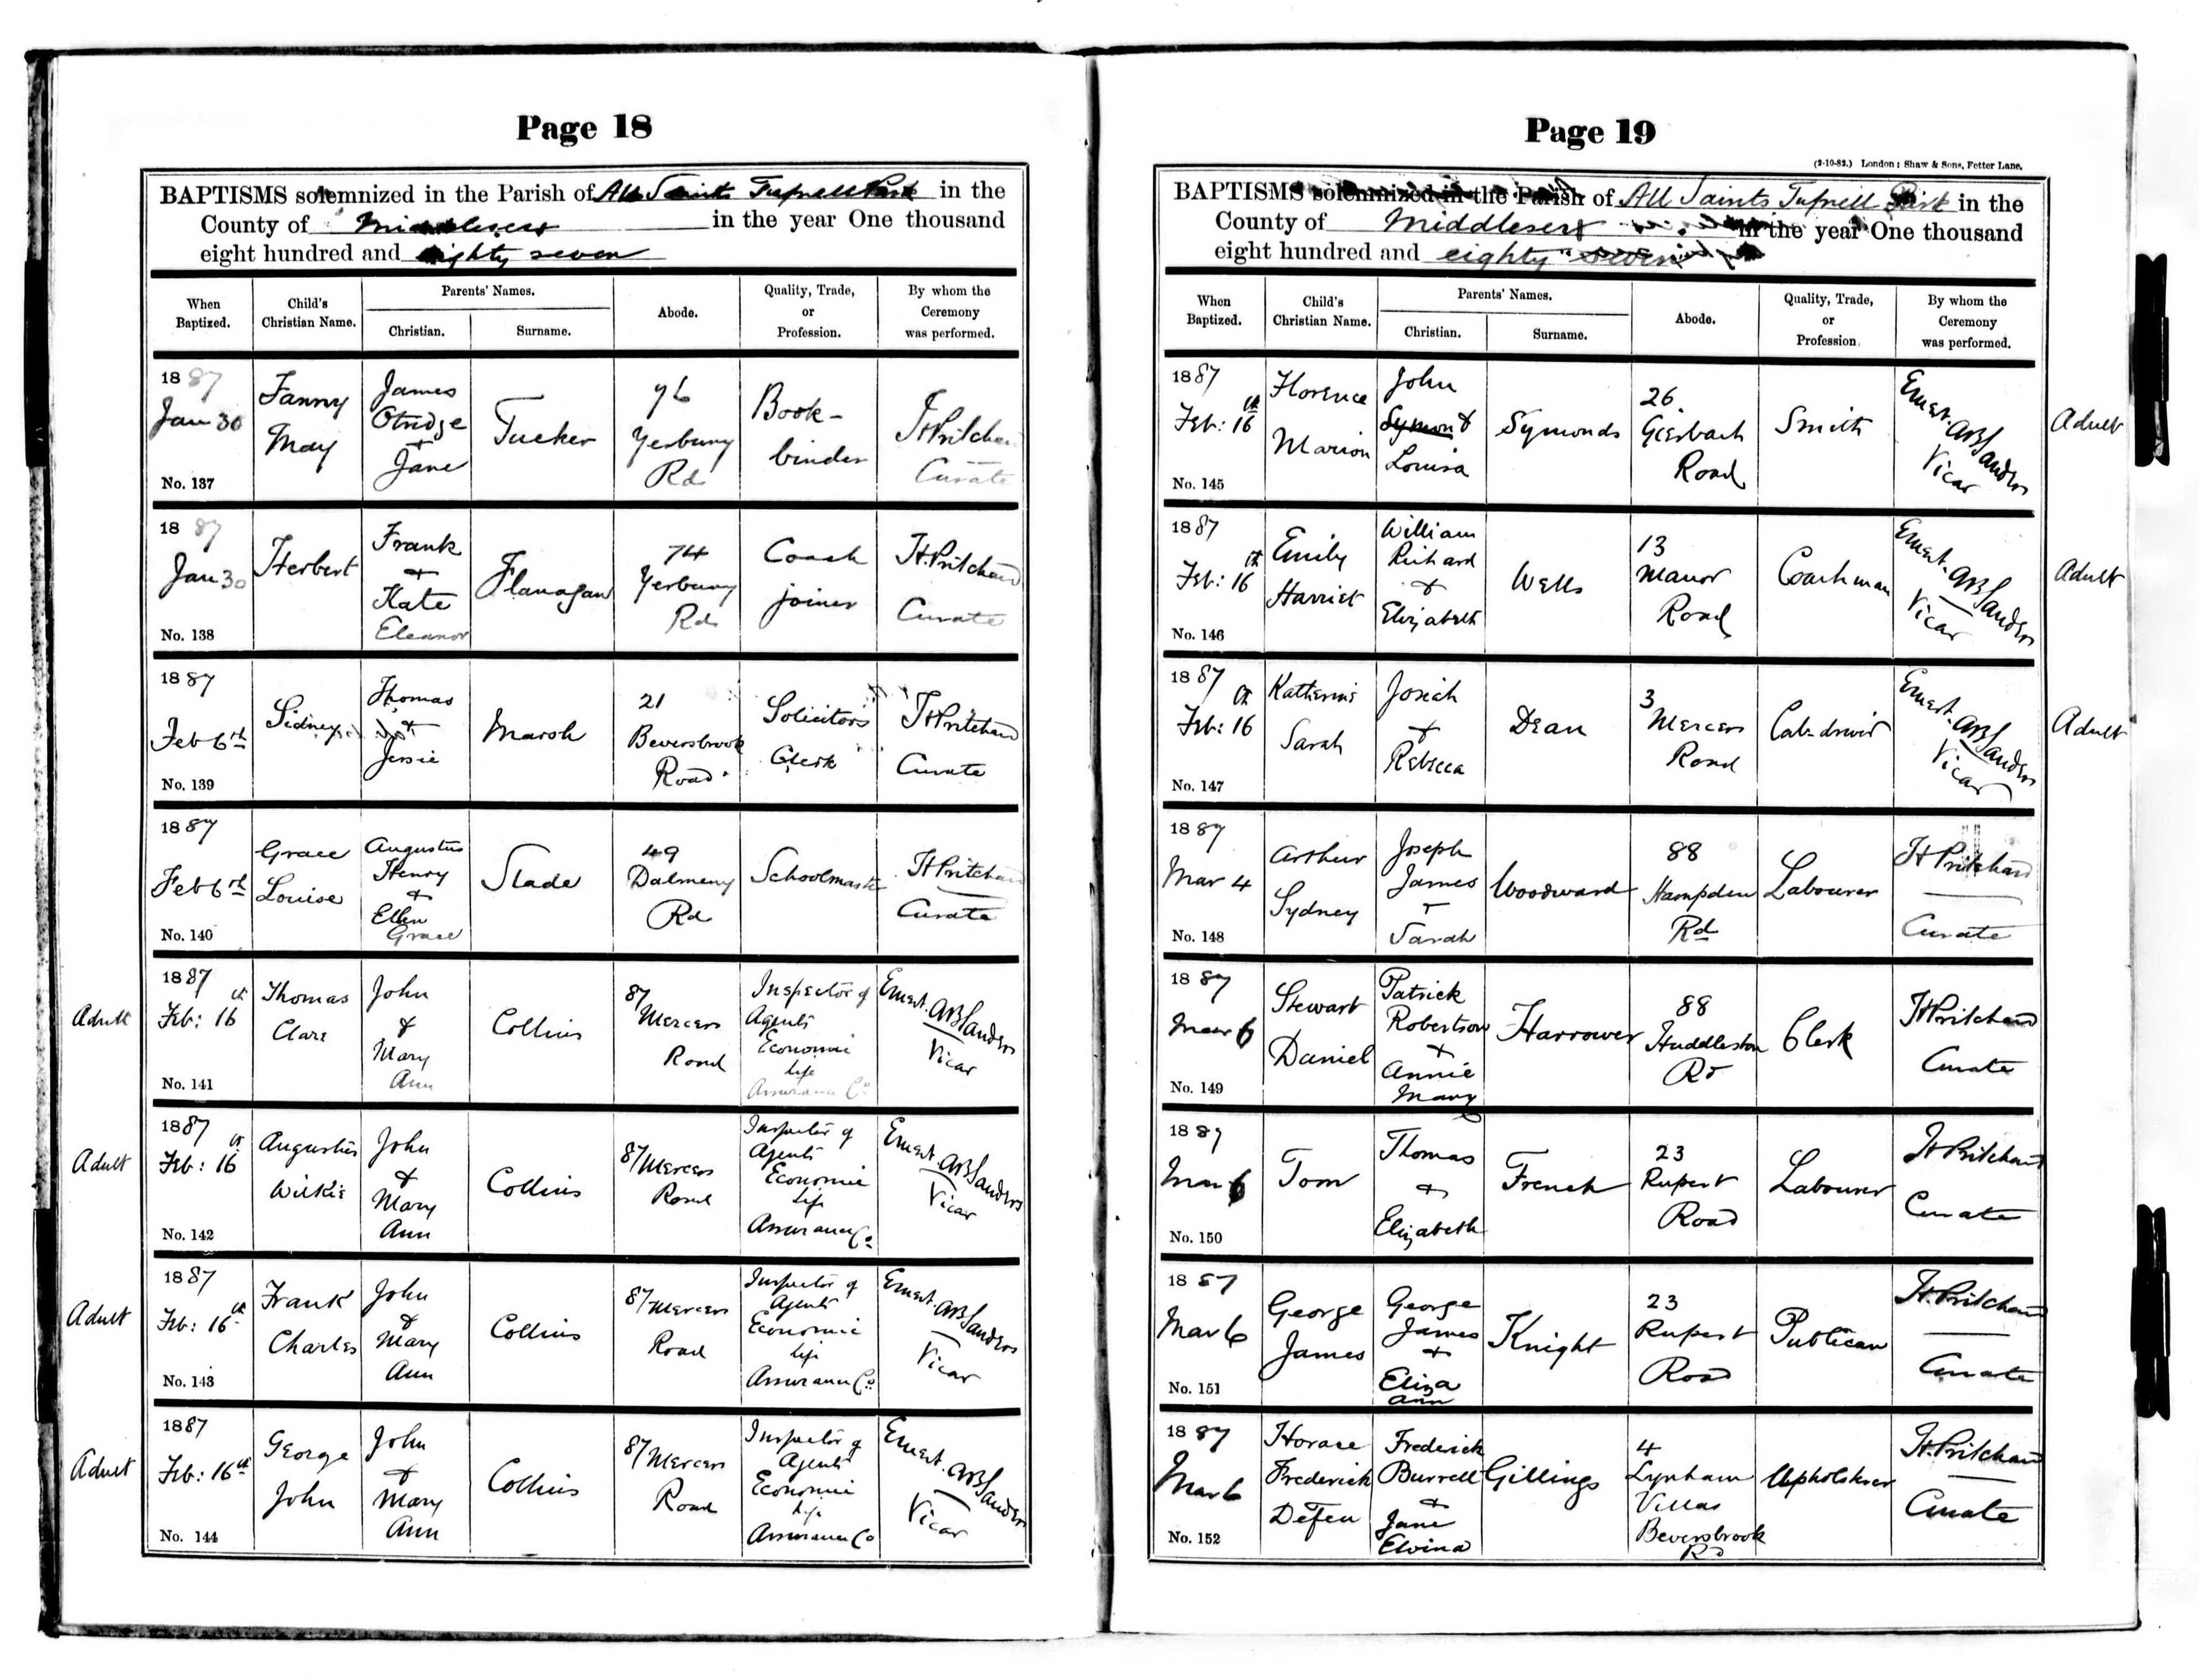 Page 18
BAPTISMS solemnized in the Parish of All Saints Tufnell Park in the
County of Middlesex in the year One thousand
eight hundred and eighty seven
When Baptized.
Child's Christian Name.
Parents' Names.
Christian.
Surname.
Abode.
Quality, Trade, or Profession.
By whom the Ceremony was performed.
1887
Jan 30
No. 137
Fanny
May
James
Otridge
+
Jane
Tucker
76
Yerbury
Rd
Book-
binder
H Pritchard
Curate
1887
Jan 30
No. 138
Herbert
Frank
+
Kate
Eleanor
Flanagan
74
Yerbury
Rd
Coach
joiner
H. Pritchard
Curate
1887
Feb 6th
No. 139
Sidney
Thomas
+
Jessie
Marsh
21
Beversbrook
Road
Solicitors
Clerk
H Pritchard
Curate
1887
Feb 6th
No. 140
Grace
Louise
Augustus
Henry
+
Ellen
Grace
Slade
49
Dalmeny
Rd
Schoolmaster
H Pritchard
Curate
Adult
1887
Feb: 16th
No. 141
Thomas
Clare
John
&
Mary
Ann
Collins
87
Mercers
Road
Inspector of
Agents
Economic
Life
Assurance Co
Ernest. A B Sanders
Vicar
Adult
1887
Feb: 16th
No. 142
Augustus
Wilkie
John
&
Mary
Ann
Collins
87 Mercers
Road
Inspector of
Agents
Economic
Life
Assurance Co.
Ernest. A B Sanders
Vicar
Adult
1887
Feb: 16th
No. 143
Frank
Charles
John
&
Mary
Ann
Collins
87 Mercers
Road
Inspector of
Agents
Economic
Life
Assurance Co.
Ernest. A B Sanders
Vicar
Adult
1887
Feb: 16th
No. 144
George
John
John
&
Mary
Ann
Collins
87 Mercers
Road
Inspector of
Agents
Economic
Life
Assurance Co
Ernest. A B Sanders
Vicar
Page 19
(2-10-82.) London: Shaw & Sons, Fetter Lane,
BAPTISMS solemnized in the Parish of All Saints Tufnell Park in the
County of Middlesex in the year One thousand
eight hundred and eighty seven
When Baptized.
Child's Christian Name.
Parents' Names.
Christian.
Surname.
Abode.
Quality, Trade, or Profession.
By whom the Ceremony was performed.
1887
Feb: 16th
No. 145
Florence
Marion
John
&
Louisa
Symonds
26
Giesbach
Road
Smith
Ernest. A B Sanders
Vicar
Adult
1887
Feb: 16th
No. 146
Emily
Harriet
William
Richard
&
Elizabeth
Wells
13
Manor
Road
Coachman
Ernest. A B Sanders
Vicar
Adult
1887
Feb: 16th
No. 147
Katherine
Sarah
Josiah
+
Rebecca
Dean
3
Mercers
Road
Cab-driver
Ernest. A B Sanders
Vicar
Adult
1887
Mar 4
No. 148
Arthur
Sydney
Joseph
James
+
Sarah
Woodward
88
Hampden
Rd
Labourer
H Pritchard
Curate
1887
Mar 6
No. 149
Stewart
Daniel
Patrick
Robertson
+
Annie
Mary
Harrower
88
Huddleston
Rd
Clerk
H Pritchard
Curate
1887
Mar 6
No. 150
Tom
Thomas
+
Elizabeth
French
23
Rupert
Road
Labourer
H Pritchard
Curate
1887
Mar 6
No. 151
George
James
George
James
+
Eliza
Ann
Knight
23
Rupert
Road
Publican
H. Pritchard
Curate
1887
Mar 6
No. 152
Horace
Frederick
Frederick
Burrell
+
Jane
Elvina
Gillings
4
Lynham
Villas
Beversbrook
Rd
Upholsterer
H. Pritchard
Curate